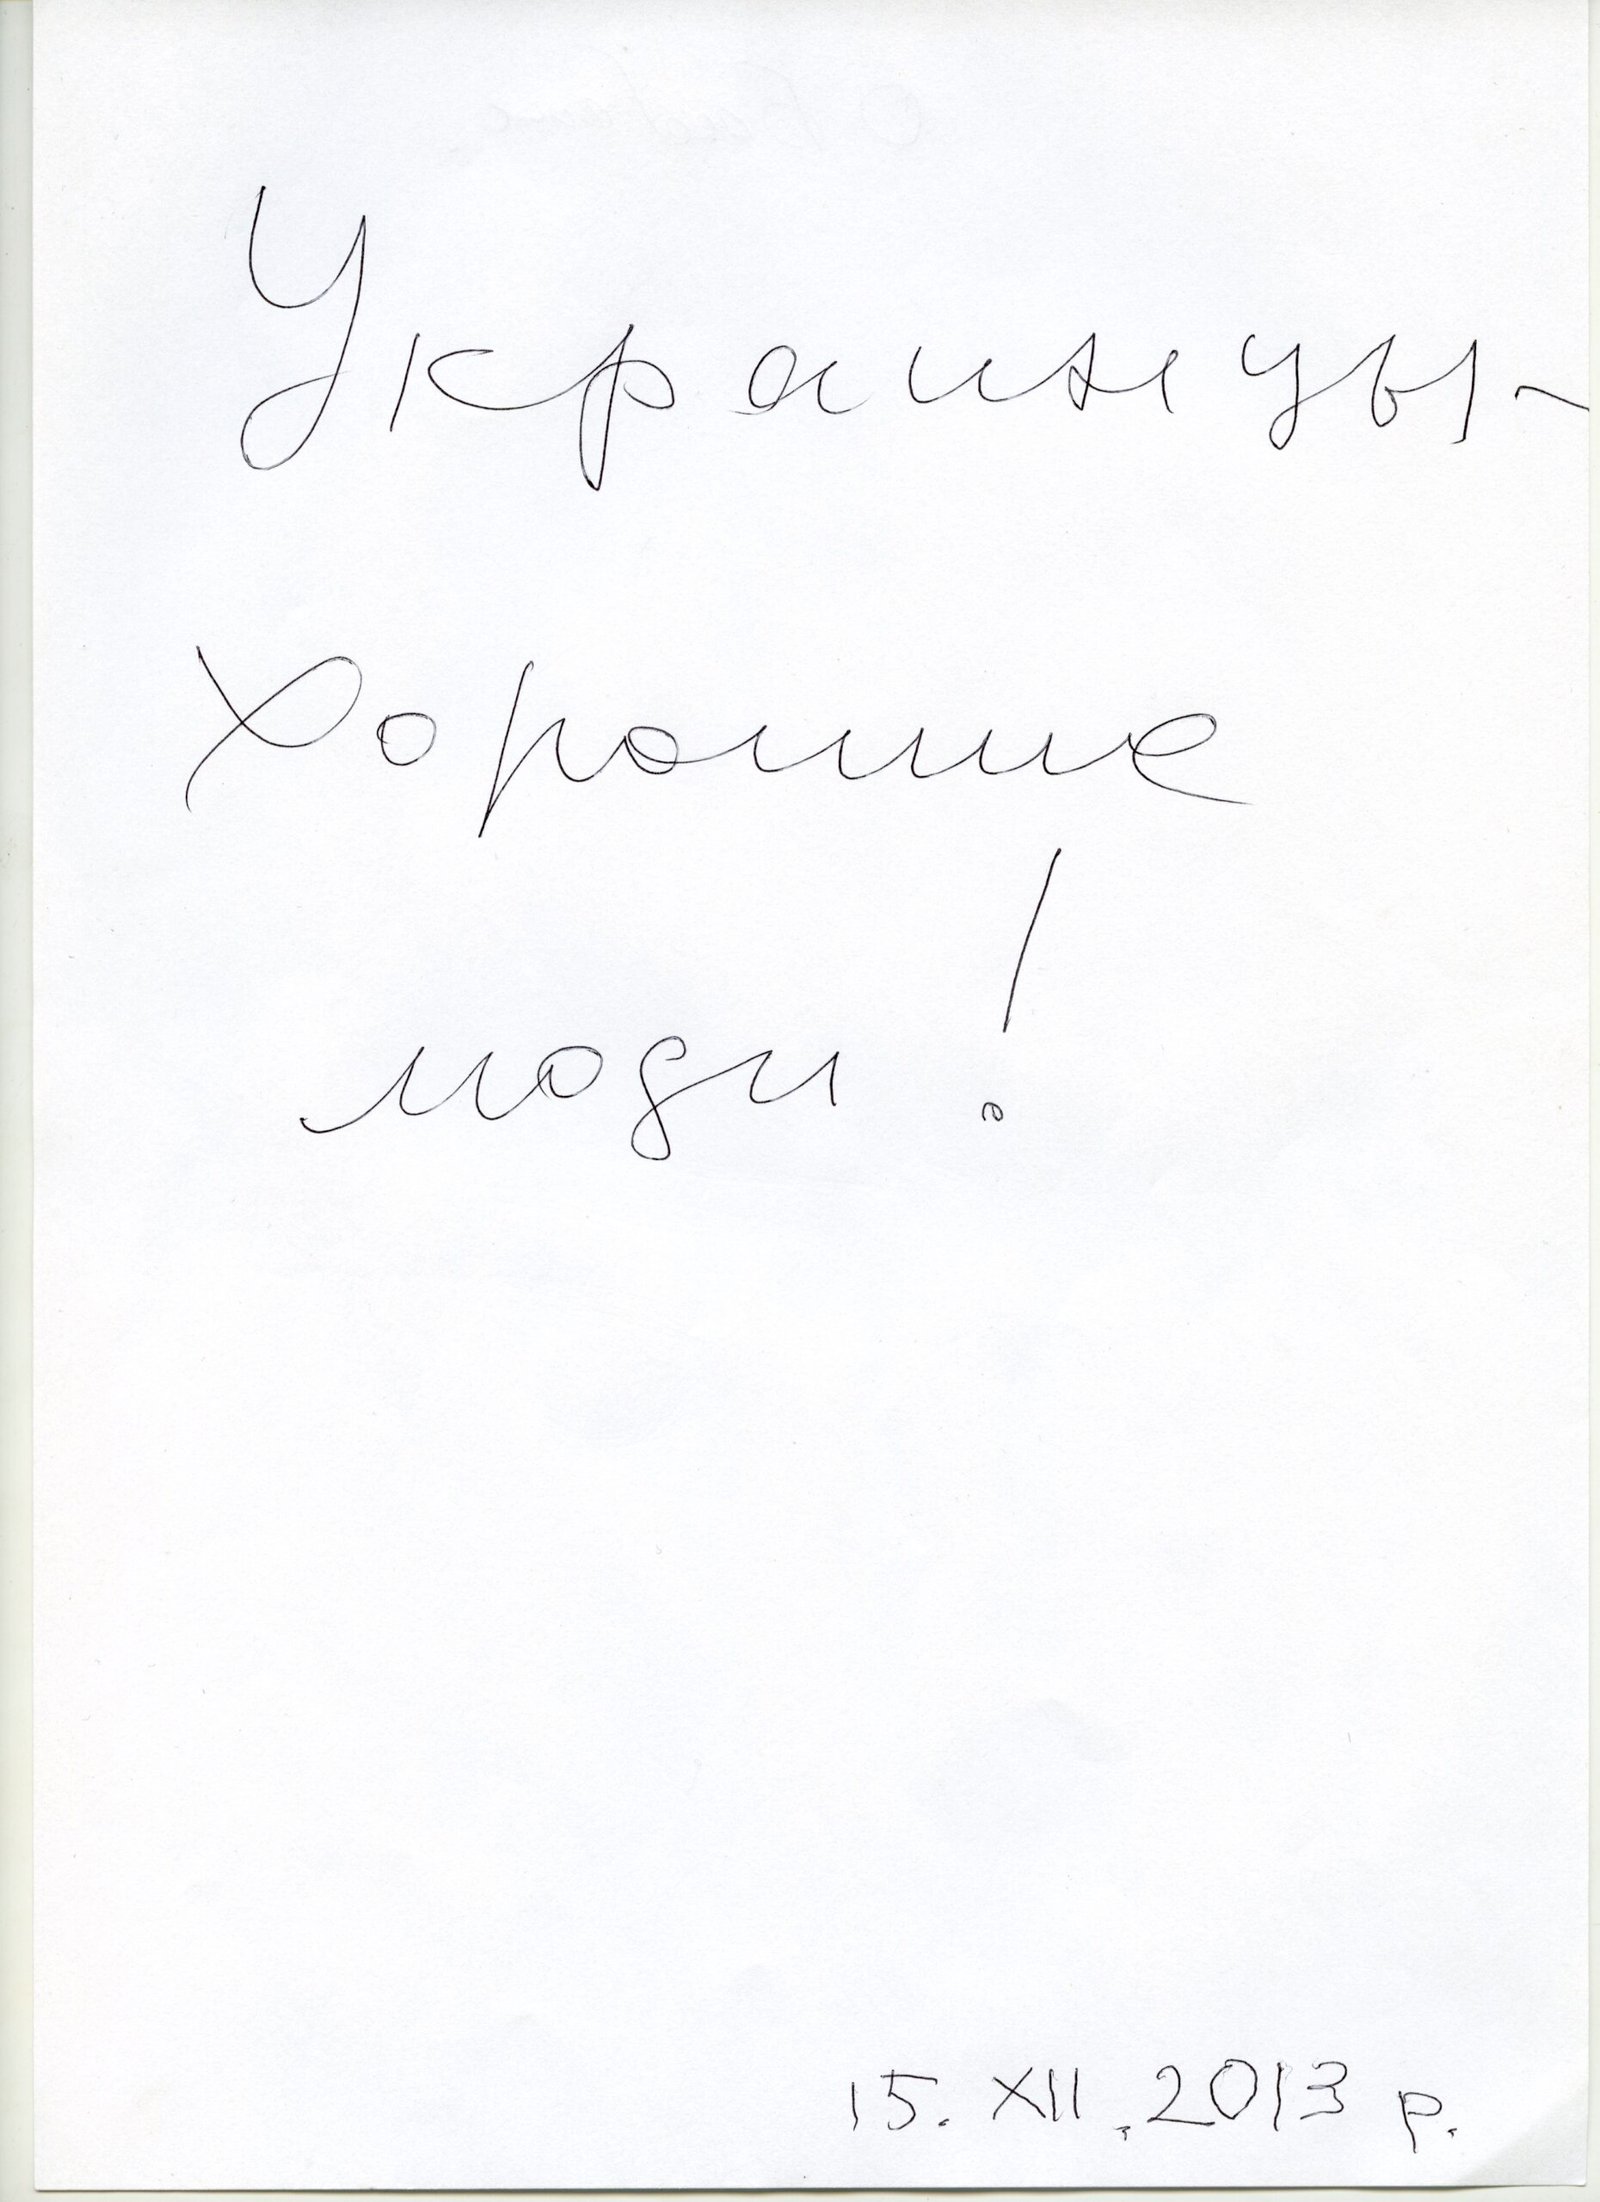 Украинцы -
хорошие
люди!
15. XII. 2013 р.